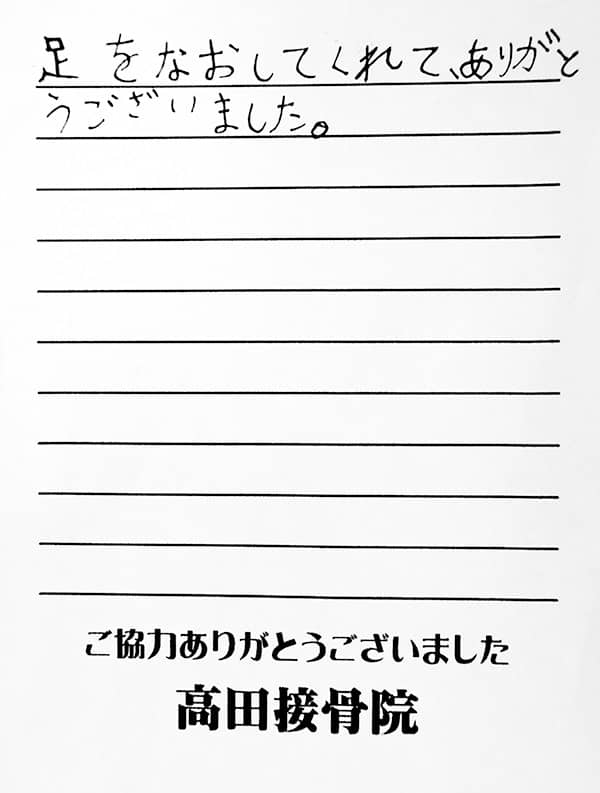 足をなおしてくれて、ありがと
うございました。
ご協力ありがとうございました
高田接骨院